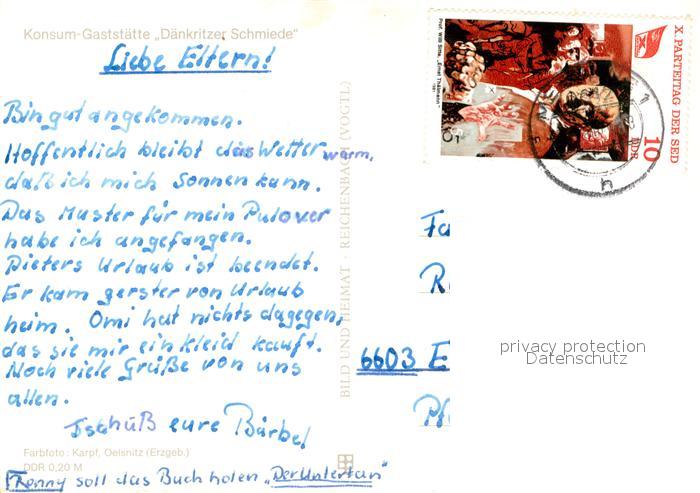 Konsum-Gaststätte „Dänkritzer Schmiede"
Liebe Eltern!
Bin gut angekommen.
Hoffentlich bleibt das Wetter warm,
daß ich mich Sonnen kann.
Das Muster für mein Pulover
habe ich angefangen.
Dieters Urlaub ist beendet.
Er kam gerster von Urlaub
heim. Omi hat nichts dagegen,
das sie mir ein kleid kauft.
Noch viele Grüße von uns
allen.
Tschüß eure Bärbel
Farbfoto: Karpf, Oelsnitz (Erzgeb.)
DDR 0,20 M
Ronny soll das Buch holen „Der Untertan"
BILD UND HEIMAT · REICHENBACH (VOGTL)
Prof. Willi Sitte, „Ernst Thälmann"
1981
X. PARTEITAG DER SED
10
DDR
6603 E
privacy protection
Datenschutz